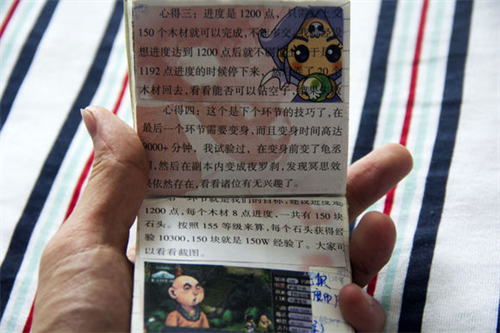 心得三：进度是1200点，
150个木材就可以完成，不
想进度达到1200点后就不
1192点进度的时候停下来，
木材回去，看看能否可以钻空子，
心得四：这个是下个环节的技巧了，在
最后一个环节需要变身，而且变身时间高达
9000+分钟，我试验过，在变身前变了龟丞
，然后在副本内变成夜罗刹，发现冥思效
依然存在，看看诸位有无兴趣了。
环节就是我们的目标，
1200点，每个木材8点进度，一共有150块
石头。按照155等级来算，每个石头获得经
验10300，150块就是150W经验了。大家可
以看看截图。